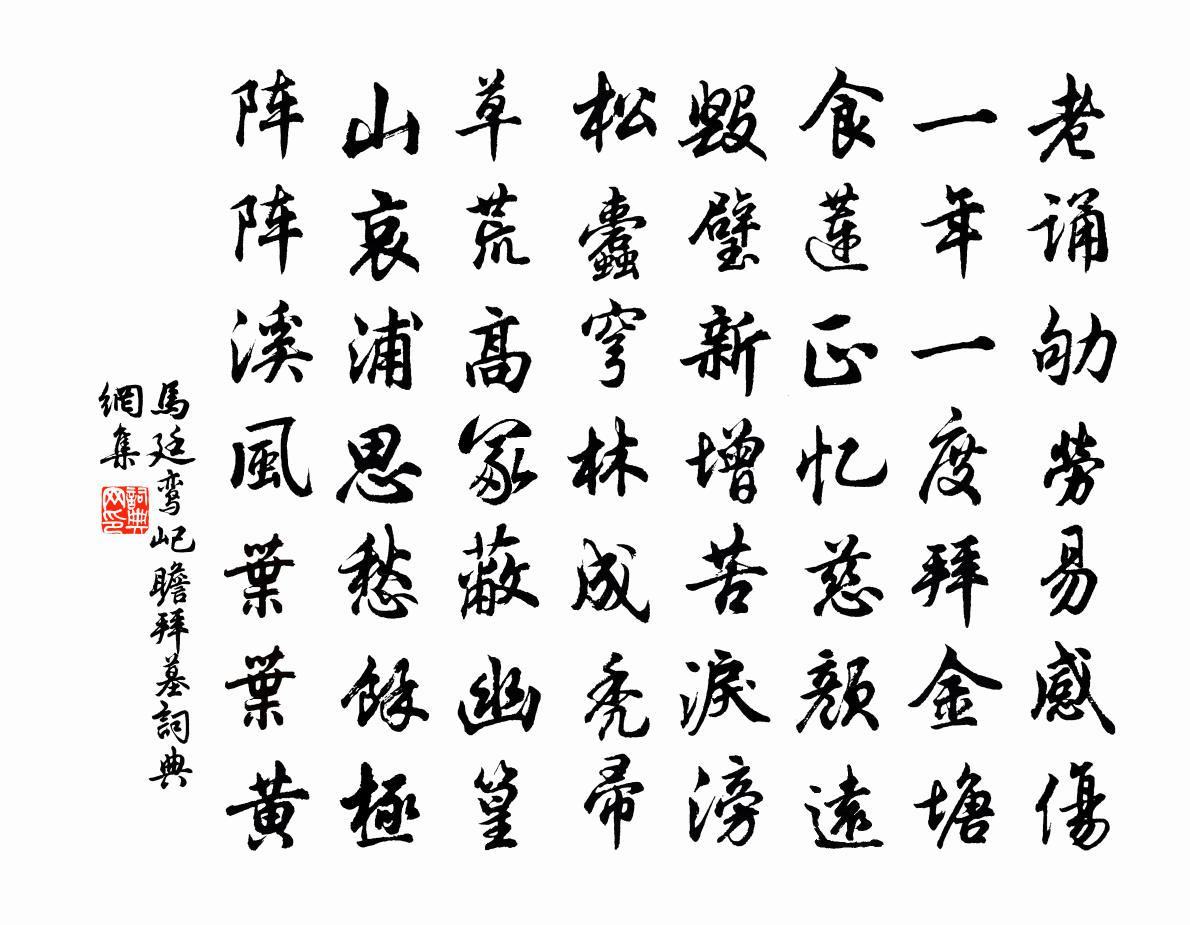 老诵劬勞易感傷
一年一度拜金塘
食蓮正忆慈顔遠
毁璧新增苦淚滂
松蠹穹林成秃帚
草荒高冢蔽幽篁
山哀浦思愁餘極
阵阵溪風葉葉黄
馬廷鸾屺瞻拜墓詞典
網集
詞典网印